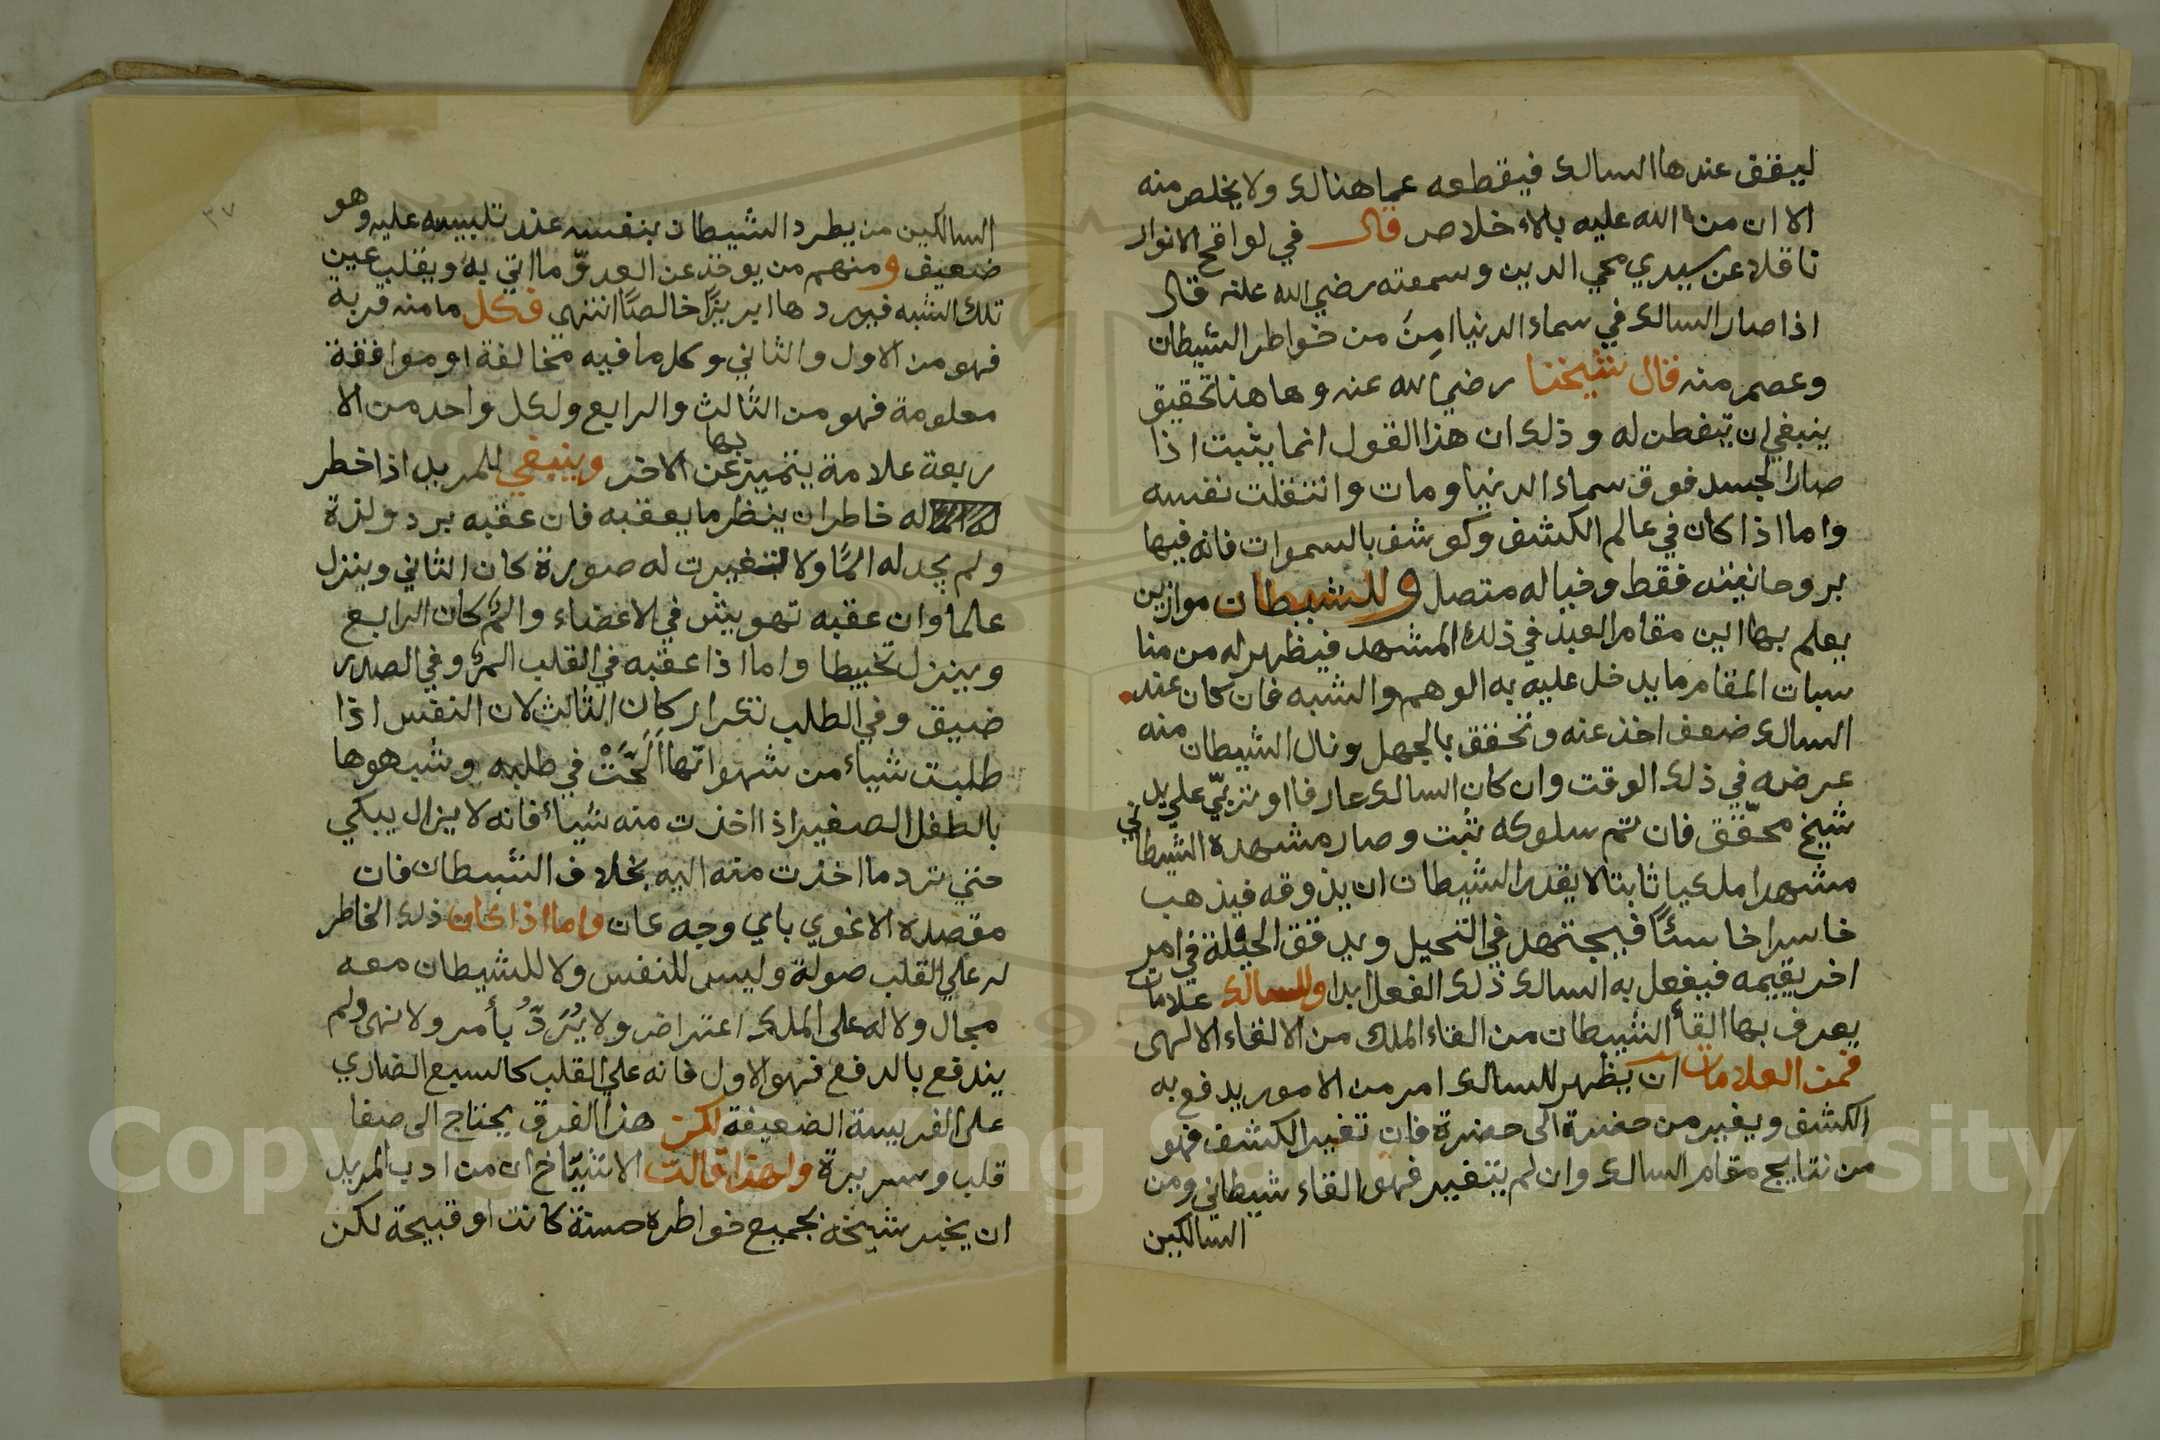 ليقف عندها السالك فيقطعه عما هنالك ولا يخلص منه
الا ان من الله عليه بالاخلاص قال في لواقح الانوار
ناقلا عن سيدي محي الدين وسمعته رضي الله عنه قال
اذا صار السالك في سماء الدنيا امِنَ من خواطر الشيطان
وعصم منه قال شيخنا رضي الله عنه وهاهنا تحقيق
ينبغي ان يتفطن له وذلك ان هذا القول انما يثبت اذا
صار الجسد فوق سماء الدنيا ومات وانتقلت نفسه
واما اذا كان في عالم الكشف وكوشف بالسموات فانه فيها
بروحانيته فقط وخياله متصل وللشيطان موازين
يعلم بها اين مقام العبد في ذلك المشهد فيظهر له من منا
سبات المقام ما يدخل عليه به الوهم والشبه فان كان عند
السالك ضعف اخذ عنه وتحقق بالجهل ونال الشيطان منه
عرضه في ذلك الوقت وان كان السالك عارفا او يتربّي علي يد
شيخ محقّق فان ثم سلوكه ثبت وصار مشهده الشيطاني
مشهدا ملكيا ثابتا لا يقدر الشيطان ان يذوقه فيذهب
خاسرا خاسئًا فيجتهد في التحيل ويدقق الحيلة في امر
اخر يقيمه فيفعل به السالك ذلك الفعل ابدا وللسالك علامات
يعرف بها القأ الشيطان من القاء الملك من الالقاء الالهي
فمن العلامات ان يظهر للسالك امر من الامور يدفع به
الكشف ويغير من حضرة الى حضرة فان تغير الكشف فهو
من نتايج مقام السالك وان لم يتغير فهو القاء شيطاني ومن
السالكين
٣٧
السالكين من يطرد الشيطان بنفسه عند تلبيسه عليه وهو
ضعيف ومنهم من يوخذ عن العدوّ ما اتي به ويقلب عين
تلك الشبه فيردها ابريزًا خالصًا انتهى فكل ما منه قربة
فهو من الاول والثاني وكل ما فيه مخالفة او موافقة
معلومة فهو من الثالث والرابع ولكل واحد من الا
ربعة علامة يتميز بها عن الاخر وينبغي للمريد اذا خطر
له خاطر ان ينظر ما يعقبه فان عقبه برد ولذة
ولم يجد له المًا ولا تغيرت له صورة كان الثاني وينزل
علما وان عقبه تهويش في الاعضاء والمٌ كان الرابع
وينزل تخبيطا واما اذا عقبه في القلب المٌ وفي الصدر
ضيق وفي الطلب تكرار كان الثالث لان النفس اذا
طلبت شياء من شهواتها اَلَحَّتْ في طلبه وشبهوها
بالطفل الصغير اذا اخذت منه شياء فانه لا يزال يبكي
حتي ترد ما اخذت منه اليه بخلاف الشيطان فان
مقصده الاغوي باي وجه كان واما اذا كان ذلك الخاطر
له علي القلب صولة وليس للنفس ولا للشيطان معه
مجال ولا له على الملك اعتراض ولا يُرَدُّ بأمر ولا نهى ولم
يندفع بالدفع فهو الاول فانه علي القلب كالسبع الضاري
على الفريسة الضعيفة لكن هذا الفرق يحتاج الى صفا
قلب وسريرة ولهذا قالت الاشياخ ان من ادب المريد
ان يخبر شيخه بجميع خواطره حسنة كانت او قبيحة لكن
Copyright © King Saud University